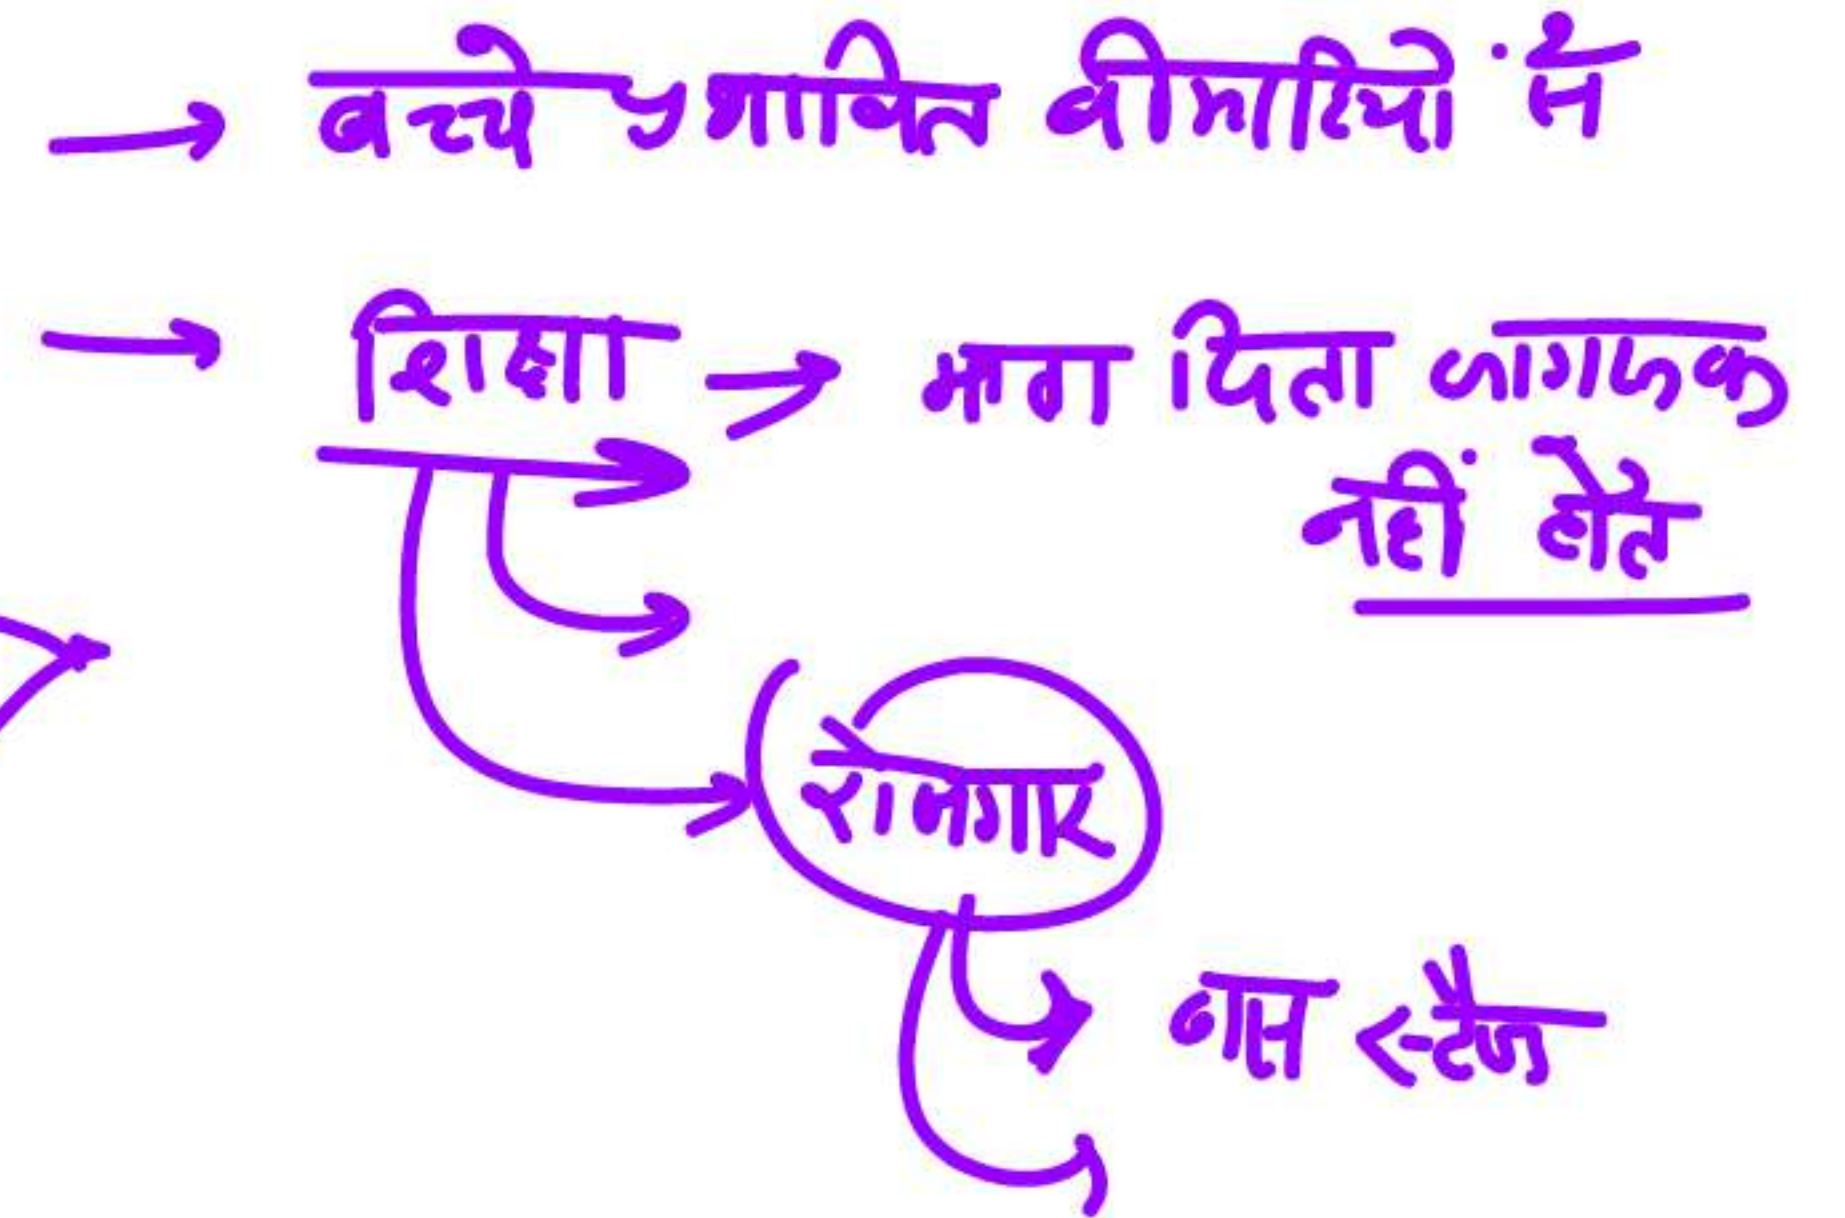 → बच्चे प्रभावित बीमारियों से
→ शिक्षा → माता पिता जागरूक
नहीं होते
रोजगार